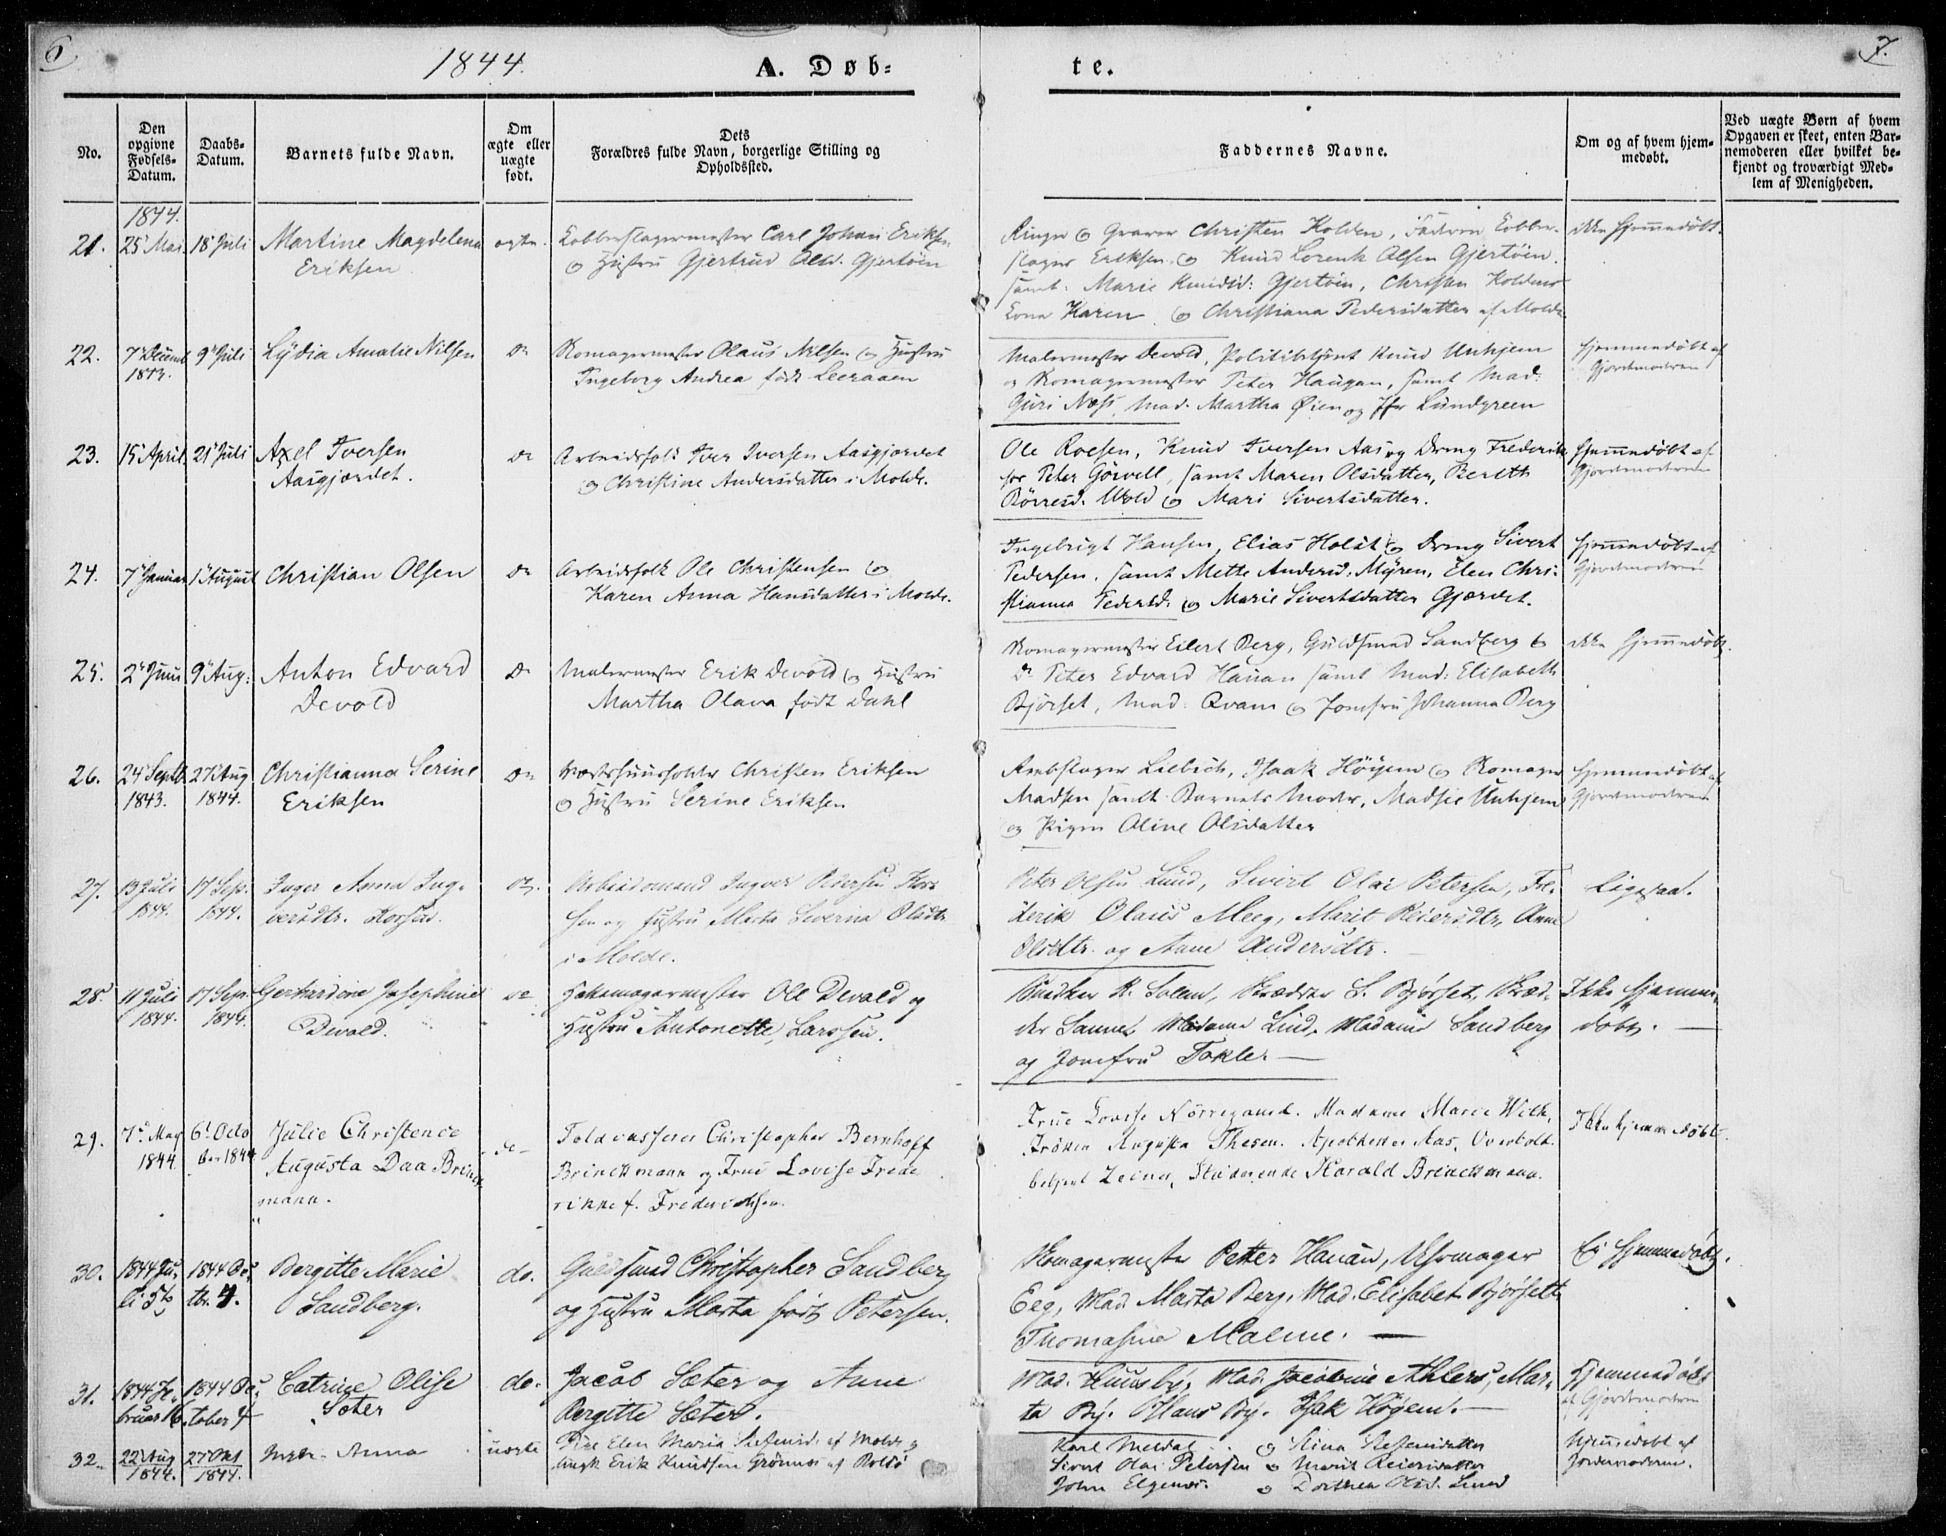 6
1844.
A. Døb-
te.
7.
No.
Den opgivne Fødsels-Datum.
Daabs-Datum.
Barnets fulde Navn.
Om ægte eller uægte født.
Dets
Forældres fulde Navn, borgerlige Stilling og
Opholdssted.
Faddernes Navne.
Om og af hvem hjem-
medøbt.
Ved uægte Børn af hvem
Opgaven er skeet, enten Bar-
nemoderen eller hvilket be-
kjendt og troværdigt Med-
lem af Menigheden.
1844.
21. 25 Mai. 18 Juli Martine Magdelena
Eriksen
ægte. Kobberslagermester Carl Johan Eriksen
og Hustru Gjertrud Olsd. Gjertøien
Ringer og Graver Christen Kolden, Faderen Kobber-
slager Eriksen og Knud Lorentz Olsen Gjertøien.
samt: Marie Knudsd: Gjertøien, Christen Koldens
Kone Karen og Christiana Pedersdatter af Molde
ikke Hjemmedøbt.
22. 7 Decemb 1843. 9 Juli Lydia Amalie Nilsen
Do Skomagermester Olaus Nilsen og Hustru
Ingeborg Andrea født Leeraaen
Malermester Devold, Politibetjent Knud Unhjem
og Skomagermester Peter Haugan, samt Mad:
Guri Næss, Mad. Martha Øien og Jfr Lundgreen
Hjemmedøbt af
Gjordemoderen
23. 15 April. 21 Juli Axel Iversen
Aasgjærdet.
Do Arbeidsfolk Iver Iversen Aasgjærdet
og Christine Andersdatter i Molde.
Ole Roesen, Knud Iversen Aas og Dreng Frederik
for Peter Görvell, samt Maren Olsdatter, Bereth
Børresd. Wold og Mari Sivertsdatter.
Hjemmedøbt af
Gjordemoderen
24. 7 Januar 1 August Christian Olsen
Do Arbeidsfolk Ole Christensen og
Karen Anna Hansdatter i Molde.
Ingebrigt Hansen, Elias Holst og Dreng Sivert
Pedersen, samt Mette Andersd. Myren, Elen Chri-
stianna Pedersd. og Marie Sivertsdatter Gjærdet.
Hjemmedøbt af
Gjordemoderen
25. 2 Juni 9 Aug: Anton Edvard
Devold
Do Malermester Erik Devold og Hustru
Martha Olava født Dahl
Skomagermester Eilert Berg, Guldsmed Sandberg og
Do Peter Edvard Hauan samt Mad: Elisabeth
Bjørset, Mad: Qvam og Jomfru Johanna Berg
ikke Hjemmedøbt.
26. 24 Septb 1843. 27 Aug 1844. Christianna Serine
Eriksen
Do Værtshuusholder Christen Eriksen
og Hustru Serine Eriksen
Rebslager Liebich, Isaak Høgem og Skomager
Madsen samt Barnets Moder, Madsie Unhjem
og Pigen Oline Olsdatter
Hjemmedøbt af
Gjordemoderen
27. 13 Juli 1844. 17 Sep. 1844. Inger Anna Ing-
versdtr. Korsen.
Arbeidsmand Ingver Pedersen Kor-
sen og Hustru Marta Severina Olsdtr
i Molde.
Peter Olsen Lund, Sivert Olai Petersen, Fre-
derik Olaus Meeg, Marit Reiersdtr, Anne
Olsdtr. og Anne Andersdtr.
Ligesaa.
28. 11 Juli 1844. 17 Sep. 1844. Gerhardine Josephine
Devold.
do Hattemagermester Ole Devold og
Hustru Antonette Larssen.
Snedker R. Solem, Skrædder S. Bjørset, Skræd-
der Samuel, Madame Lind, Madame Sandberg
og Jomfru Takle.
Ikke hjemme-
døbt.
29. 7 May 1844 6 Octo ber 1844 Julie Christence
Augusta Daa Brinck
mann.
do Toldcasserer Christopher Bernhoff
Brinckmann og Frue Lovise Frede
rikke f. Frederichsen.
Frue Lovise Nörregaard. Madame Marie Wilk,
Fröken Augusta Thesen. Apotheker Aas, Overtold-
betjent Leiner, Studerende Harald Brinckmann.
Ikke hjemmedöbt.
30. 1844 Ju- li 5te 1844 Oc- tbr. 4. Bergitte Marie
Sandberg.
do. Guldsmed Christopher Sandberg
og Hustru Marta født Petersen.
Skomagermester Petter Hauan, Uhrmager
Eeg, Mad. Marta Berg, Mad. Elisabet Bjørsett,
Thomasine Malme.
Ei hjemmedøbt.
31. 1844 Fe- bruar 16. 1844 Oc- tober 4 Catrine Olise
Sæter
do. Jacob Sæter og Anne
Bergitte Sæter.
Mad. Huusby, Mad. Jacobine Ahlers, Mar-
ta By. Claus By. Isak Høgem.
Hjemmedøbt
af Gjordemoderen
32. 22 Aug 1844. 27 Okt 1844. Anna
uægte Pige Elen Maria Stefensd. af Molde og
Ungk Erik Knudsen Grønnes af Bolsø
Karl Meldal og Stina Stefensdatter
Sivert Olai Petersen og Marit Reiersdatter
John Elgenes og Dorthea Olsd. Lund
Hjemmedøbt af
Jordemoderen.